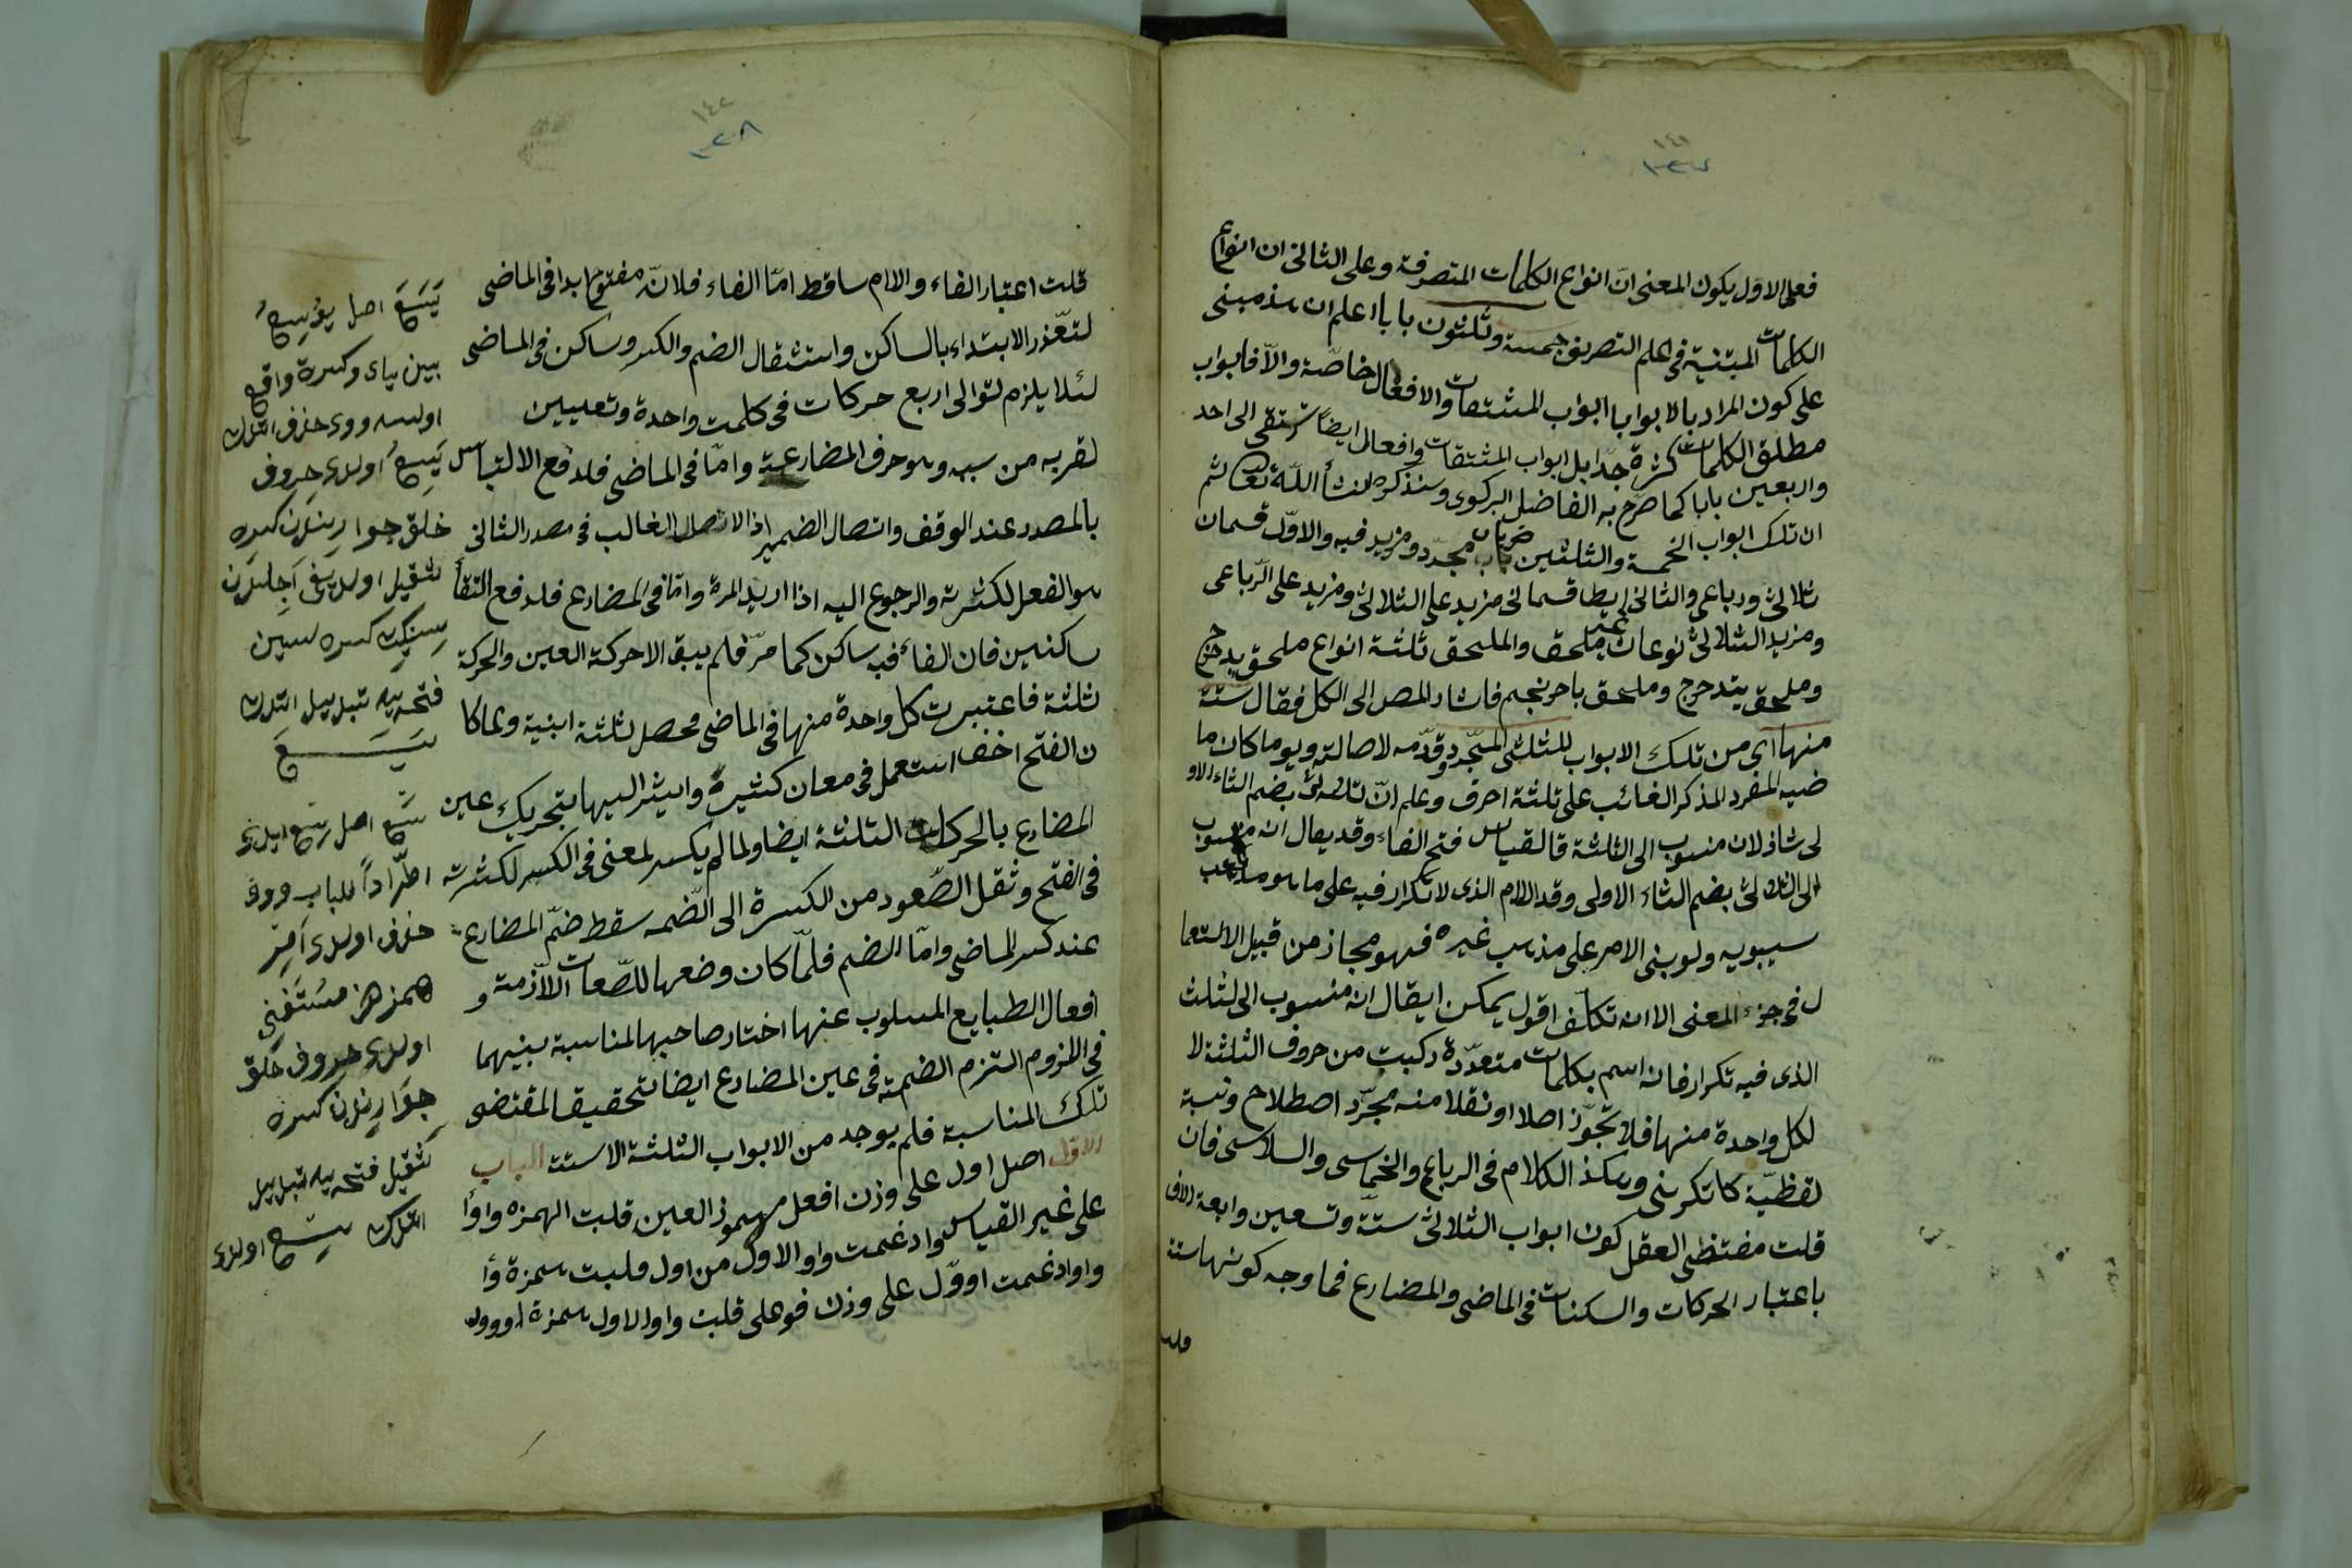 ١٤١
١٣٧
فعلى الاول يكون المعنى انّ انواع الكلمات المتصرفة وعلى الثانى ان انواع
الكلمات المبتنية فى علم التصريف خمسة وثلثون بابا اعلم ان هذ مبنى
على كون المراد بالابواب ابواب المشتقات والافعال خاصّة والّا فابواب
مطلق الكلمات كثرة جدّا بل ابواب المشتقات وافعال ايضاً ترتقى الى احد
واربعين بابا كما صرح به الفاضل البركوى وسنذكره انشأ اللّه تعالى ثم
ان تلك ابواب الخمسة والثلثين ضربان مجرّد ومزيد فيه والاوّل قسمان
ثلاثى ورباعى والثانى ايضا قسمانى مزيد على الثلاثى ومزيد على الرّباعى
ومزيد الثلاثى نوعان غير ملحق والملحق ثلثة انواع ملحق بدحرج
وملحق بتدحرج وملحق باحرنجم فاشار المص الى الكل فقال ستّة
منهااى من تلك الابواب للثلثى المجّرد وقدّمه لاصالته ويوما كان ما
ضيه المفرد المذكر الغائب على ثلثة احرف وعلم انّ ثلاثى بضم الثاء الاو
لى شاذ لان منسوب الى الثلثة قالقياس فتح الفاء وقد يقال انه منسوب
الى الثلاثى بضم الثاء الاولى وقد اللام الذى لا تكرار فيه على ما هو مذهب
سيبويه ولو بنى الامر على مذهب غيره فهو مجاز من قبيل الاستعما
ل فى جزء المعنى الا انه تكلّف اقول يمكن ايقال انه منسوب الى لثلث
الذى فيه تكرار فانه اسم بكلمات متعدّدة ركبت من حروف الثلثة لا
لكل واحدة منها فلا تجوّز اصلا او نقلا منه مجرّد اصطلاح ونسبة
لفظيّة كاتكرسى وهكذ الكلام فى الرباع والخماسى والسلاسى فان
قلت مقتظى العقل كون ابواب الثلاثى ستّة وتسعين وابعة الاف
باعتبار الحركات والسكنات فى الماضى والمضارع فما وجه كونها ستة
قلت
١٤٢
١٣٨
قلت اعتبار الفاء والام ساقط امّا الفاء فلانّه مفتوح ابدا فى الماضى
لتعّذر الابتداء بالساكن واستثقال الضم والكسر وساكن فى الماضى
لئلا يلزم توالى اربع حركات فى كلمت واحدة وتعيين
لقربه من سببه وهو حرف المضارعة وامّا فى الماضى فلدفع الالتباس
بالمصدر عند الوقف واتصال الضمير اذ الاتصال الغالب فى مصدر الثانى
هو الفعل لكثرته والرجوع اليه اذا اريد المرة وامّا فى المضارع فلدفع التقأ
ساكنين فان الفاء فيه ساكن كما مرّ فلم يبق الا حركة العين والحركة
ثلثة فاعتبرت كل واحدة منها فى الماضى فحصل ثلثة ابنية ولما كا
ن الفتح اخف استعمل فى معان كثيرة واشير اليها بتحريك عين
المضارع بالحركات الثلثة ايضا ولما لم يكسر لمعنى فى الكسر لكثرته
فى الفتح وثقل الصّعود من الكسرة الى الضّمه سقط ضمّ المضارع
عند كسر الماضى وامّا الضم فلمّا كان وضعها للصّعات اللاّزمة و
افعال الطبايع المسلوب عنها اختار صاحبها لمناسبة بينهما
فى اللزوم التزم الضمة فى عين المضارع ايضا تحقيقا لمقتضى
تلك المناسبة فلم يوجد من الابواب الثلثة الا ستت الباب
الاول اصل اول على وزن افعل مهموز العين قلبت الهمزه واوأ
على غير القياس وادغمت واو الاول من اول وقلبت همزة وأ
واوادغمت اووّل على وزن فوعل قلبت واو الاول همزة اووول
يَسَعَ اصل يوْسِعُ
بين ياى وكسره واقع
اولسه ووى حذف اتلرت
يَسِعُ اولدى حروف
خلق جوارينك كسره
ثقيل اولديغى اجلدن
سينك كسره سين
فتحه يه تبديل اتلدت
يَسَعَ
تسَع اصل تسع ايلرى
اطّراداً للباب ووى
حذف اولدى امر
همز هز مستغنى
اولدى حروف خلق
جوارينك كسره
ثقيل فتحه يه تبديل
اتلرت سع اولدى